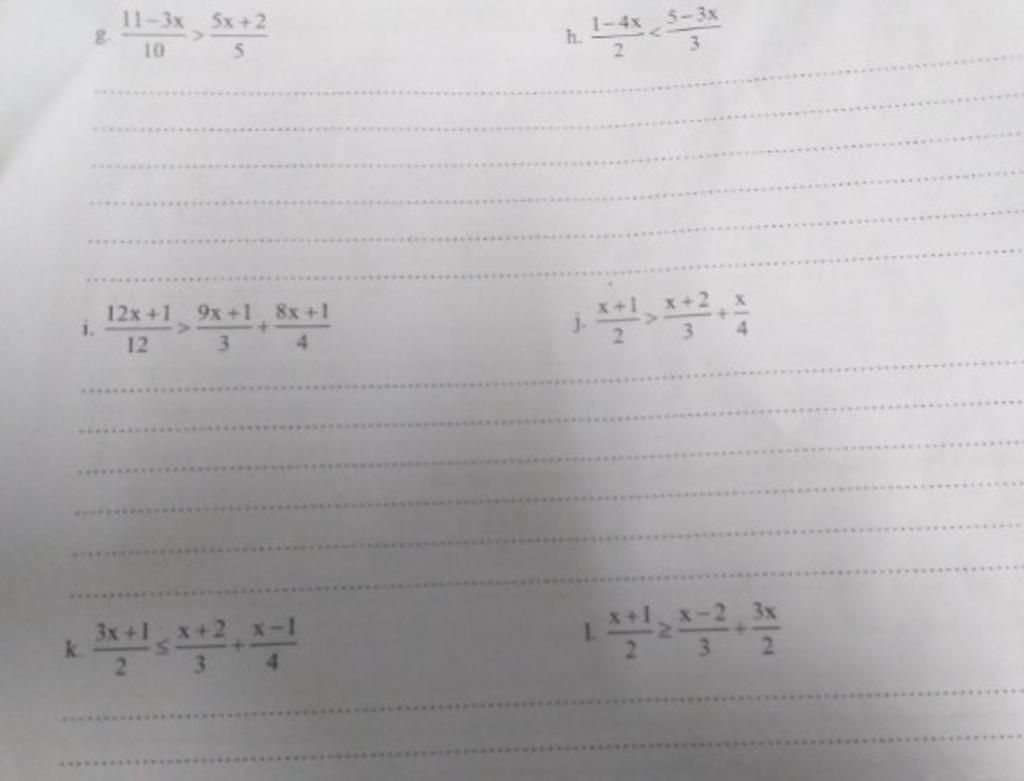 g. \frac{11-3x}{10} > \frac{5x+2}{5}
h. \frac{1-4x}{2} < \frac{5-3x}{3}
i. \frac{12x+1}{12} > \frac{9x+1}{3} + \frac{8x+1}{4}
j. \frac{x+1}{2} > \frac{x+2}{3} + \frac{x}{4}
k. \frac{3x+1}{2} ≤ \frac{x+2}{3} + \frac{x-1}{4}
l. \frac{x+1}{2} ≥ \frac{x-2}{3} + \frac{3x}{2}